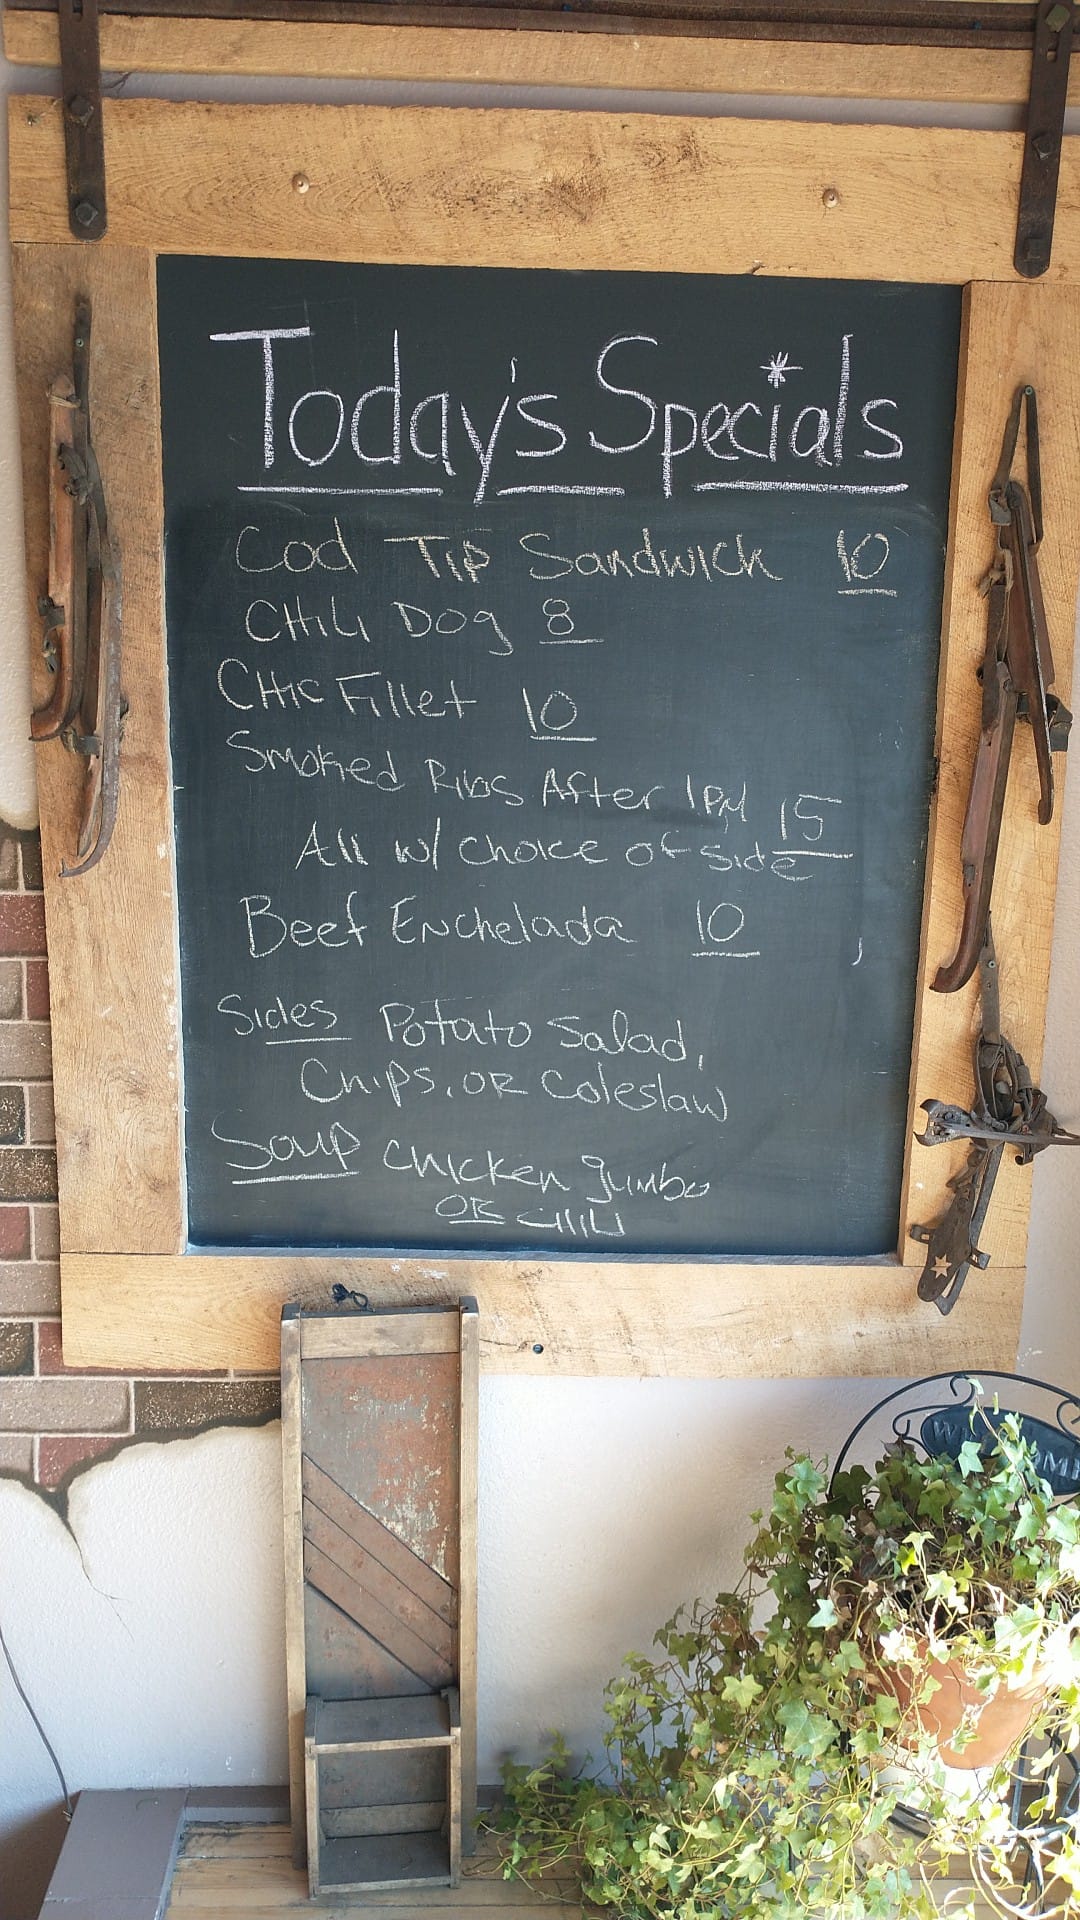 Today's Specials
Cod Tip Sandwich 10
Chili Dog 8
Chic Fillet 10
Smoked Ribs After 1PM 15
All w/ choice of side
Beef Enchelada 10
Sides Potato Salad,
Chips, or Coleslaw
Soup Chicken gumbo
or chili